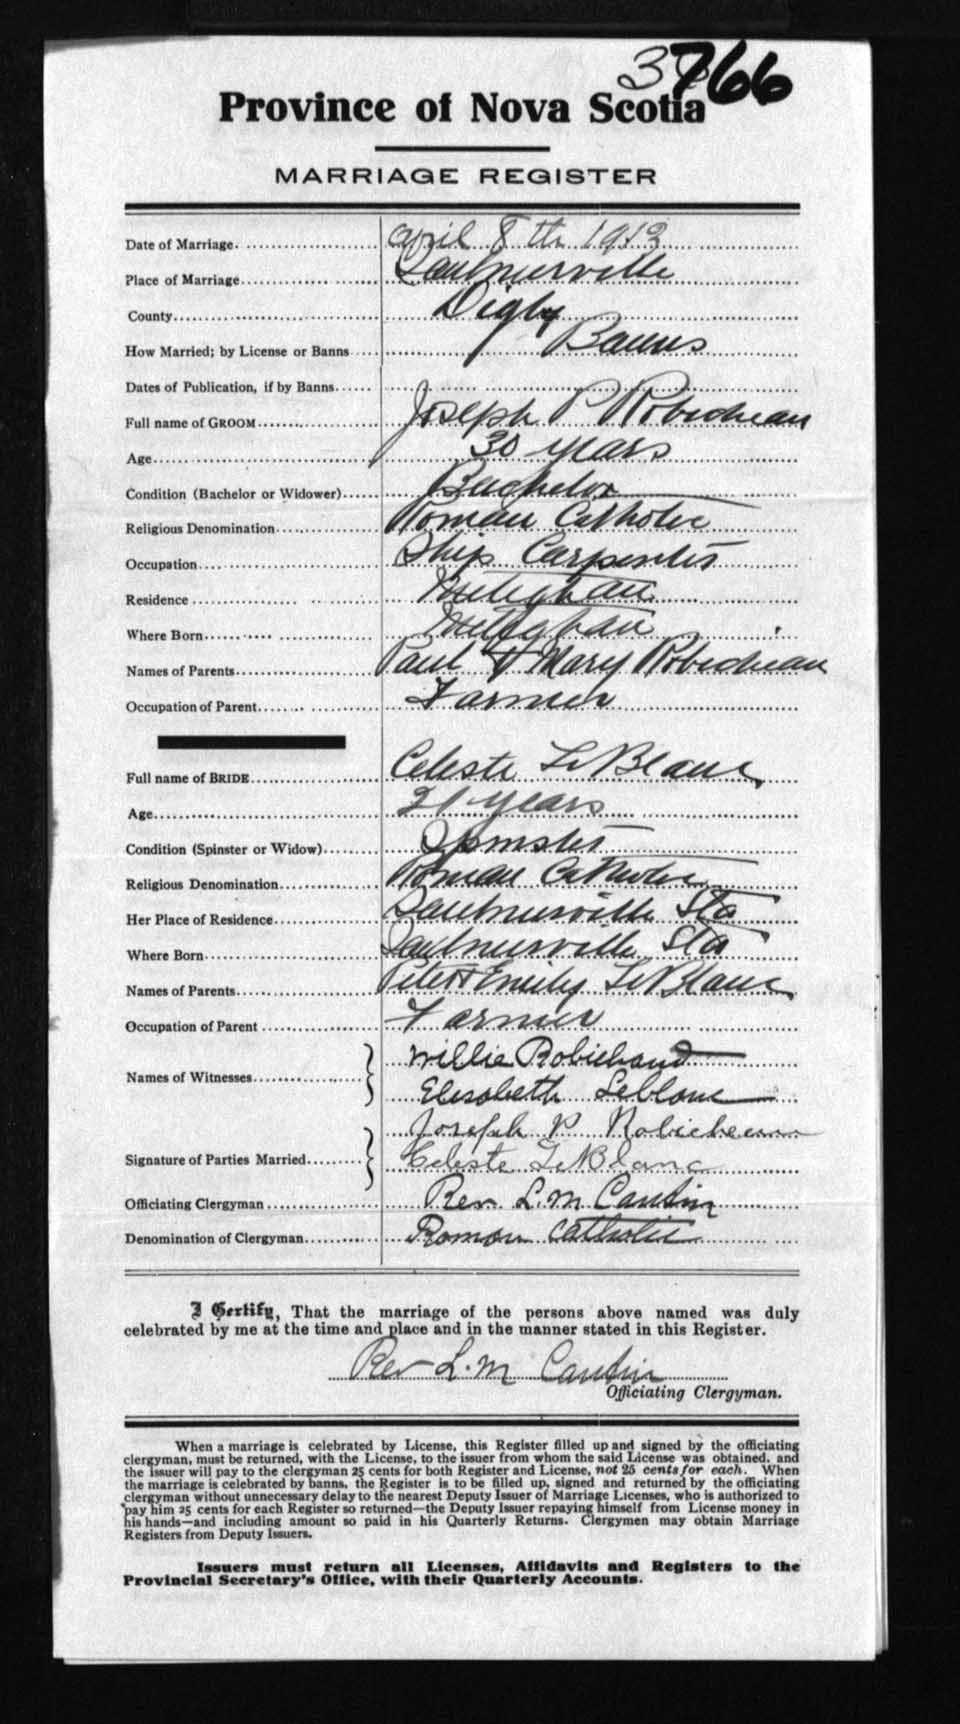 766
Province of Nova Scotia
MARRIAGE REGISTER
Date of Marriage April 8th 1912
Place of Marriage Saulnierville
County Digby
How Married; by License or Banns Banns
Dates of Publication, if by Banns
Full name of GROOM Joseph P Robicheau
Age 30 years
Condition (Bachelor or Widower) Bachelor
Religious Denomination Roman Catholic
Occupation Ship Carpenter
Residence Meteghan
Where Born Meteghan
Names of Parents Paul & Mary Robicheau
Occupation of Parent Farmer
Full name of BRIDE Celeste LeBlanc
Age 21 years
Condition (Spinster or Widow) Spinster
Religious Denomination Roman Catholic
Her Place of Residence Saulnierville Sta
Where Born Saulnierville Sta
Names of Parents Peter & Emily LeBlanc
Occupation of Parent Farmer
Names of Witnesses Willie Robichaud
Elisabeth Leblanc
Signature of Parties Married Joseph P Robicheau
Celeste LeBlanc
Officiating Clergyman Rev L. M.
Denomination of Clergyman Roman Catholic
I Certify, That the marriage of the persons above named was duly
celebrated by me at the time and place and in the manner stated in this Register.
Rev L. M
Officiating Clergyman.
When a marriage is celebrated by License, this Register filled up and signed by the officiating
clergyman, must be returned, with the License, to the issuer from whom the said License was obtained, and
the issuer will pay to the clergyman 25 cents for both Register and License, not 25 cents for each. When
the marriage is celebrated by banns, the Register is to be filled up, signed and returned by the officiating
clergyman without unnecessary delay to the nearest Deputy Issuer of Marriage Licenses, who is authorized to
pay him 25 cents for each Register so returned—the Deputy Issuer repaying himself from License money in
his hands—and including amount so paid in his Quarterly Returns. Clergymen may obtain Marriage
Registers from Deputy Issuers.
Issuers must return all Licenses, Affidavits and Registers to the
Provincial Secretary's Office, with their Quarterly Accounts.